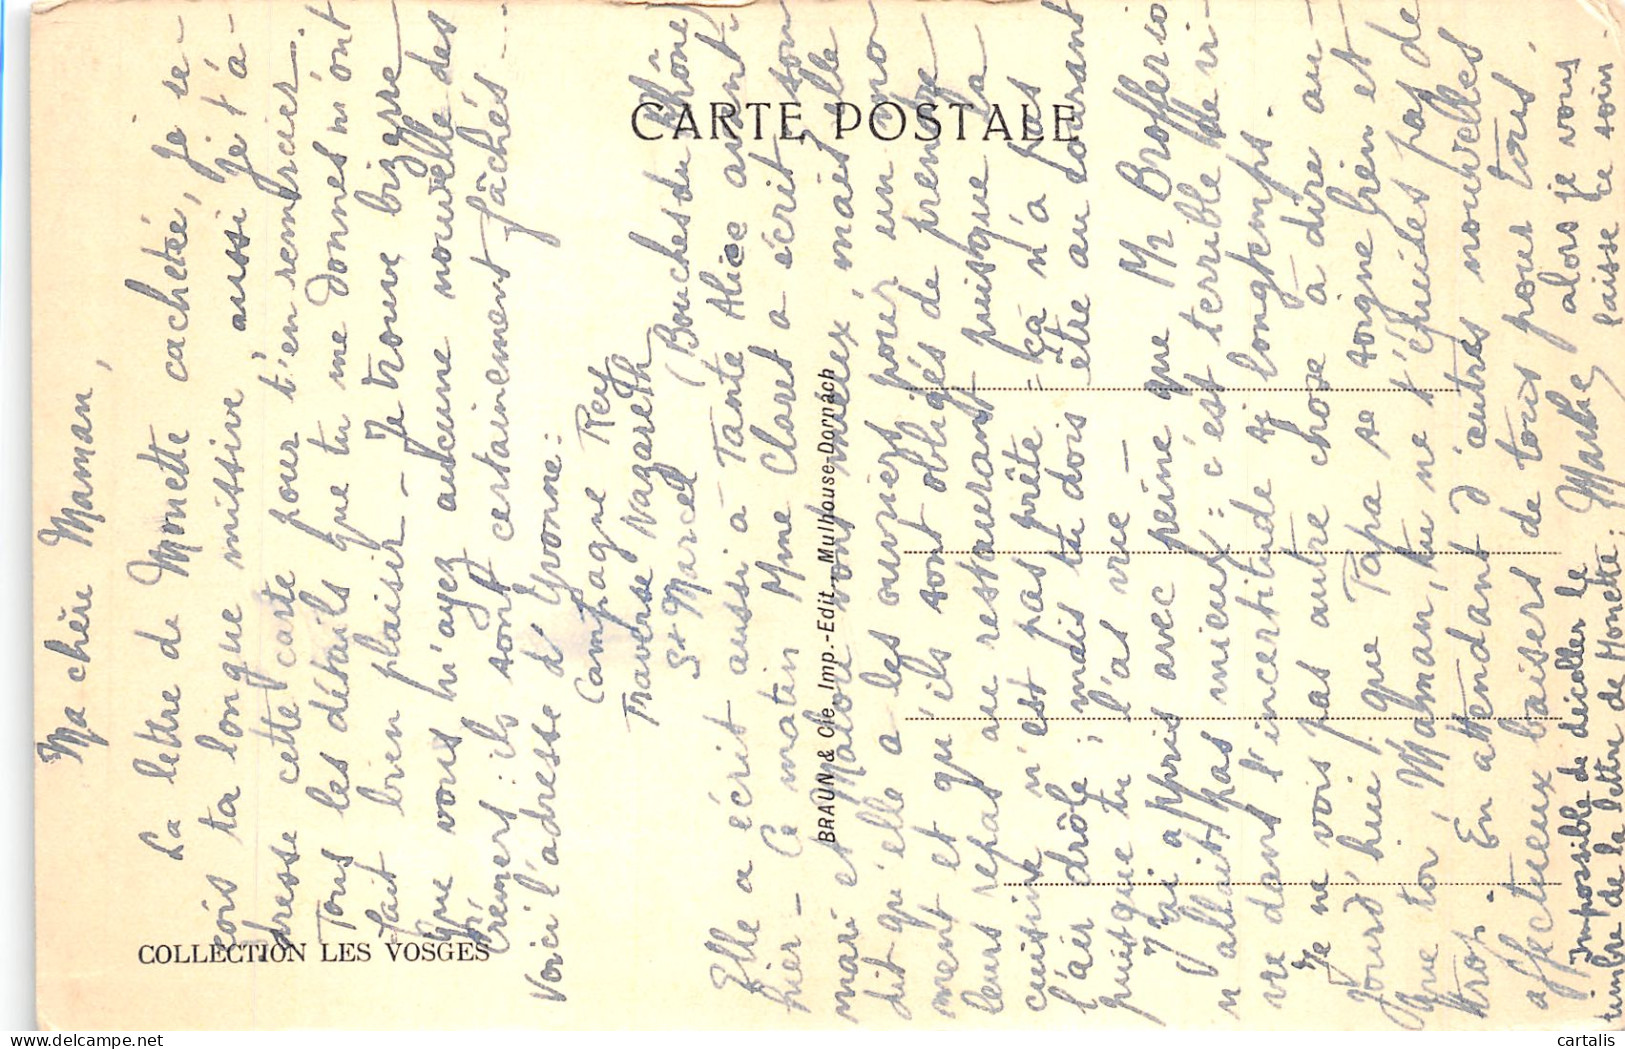 CARTE POSTALE
COLLECTION LES VOSGES
BRAUN & Cie Imp.-Edit. Mulhouse-Dornach
Ma chère Maman,
La lettre de Monette cachetée, je re-
çois ta longue missive aussi je t'a-
dresse cette carte pour t'en remercier.
Tous les détails que tu me donnes m'ont
fait bien plaisir - Je trouve bizarre
que vous n'ayez aucune nouvelle des
Crémers : ils sont certainement fâchés -
Voici l'adresse d'Yvonne :
Campagne Rey
Traverse Nazareth
St Marcel (Bouches du Rhône)
Elle a écrit aussi à Tante Alice avant-
hier - Ce matin Mme Claret a écrit son
mari et Malou vont mieux, mais elle
dit qu'elle a les ouvriers pour un mo-
ment et qu'ils sont obligés de prendre
leurs repas au restaurant puisque la
cuisine n'est pas prête - Ça n'a pas
l'air drôle, mais tu dois être au courant
puisque tu l'as vue -
J'ai appris avec peine que Mr Brofferio
n'allait pas mieux : c'est terrible de vi-
vre dans l'incertitude si longtemps.
Je ne vois pas autre chose à dire au-
jourd'hui, que Papa se soigne bien et
que toi, Maman, tu ne t'épuises pas de
trop. En attendant d'autres nouvelles
affectueux baisers de tous pour tous.
Marthe
Impossible de décoller le
timbre de la lettre de Monette :
alors je vous
laisse ce soin.
cartalis
delcampe.net